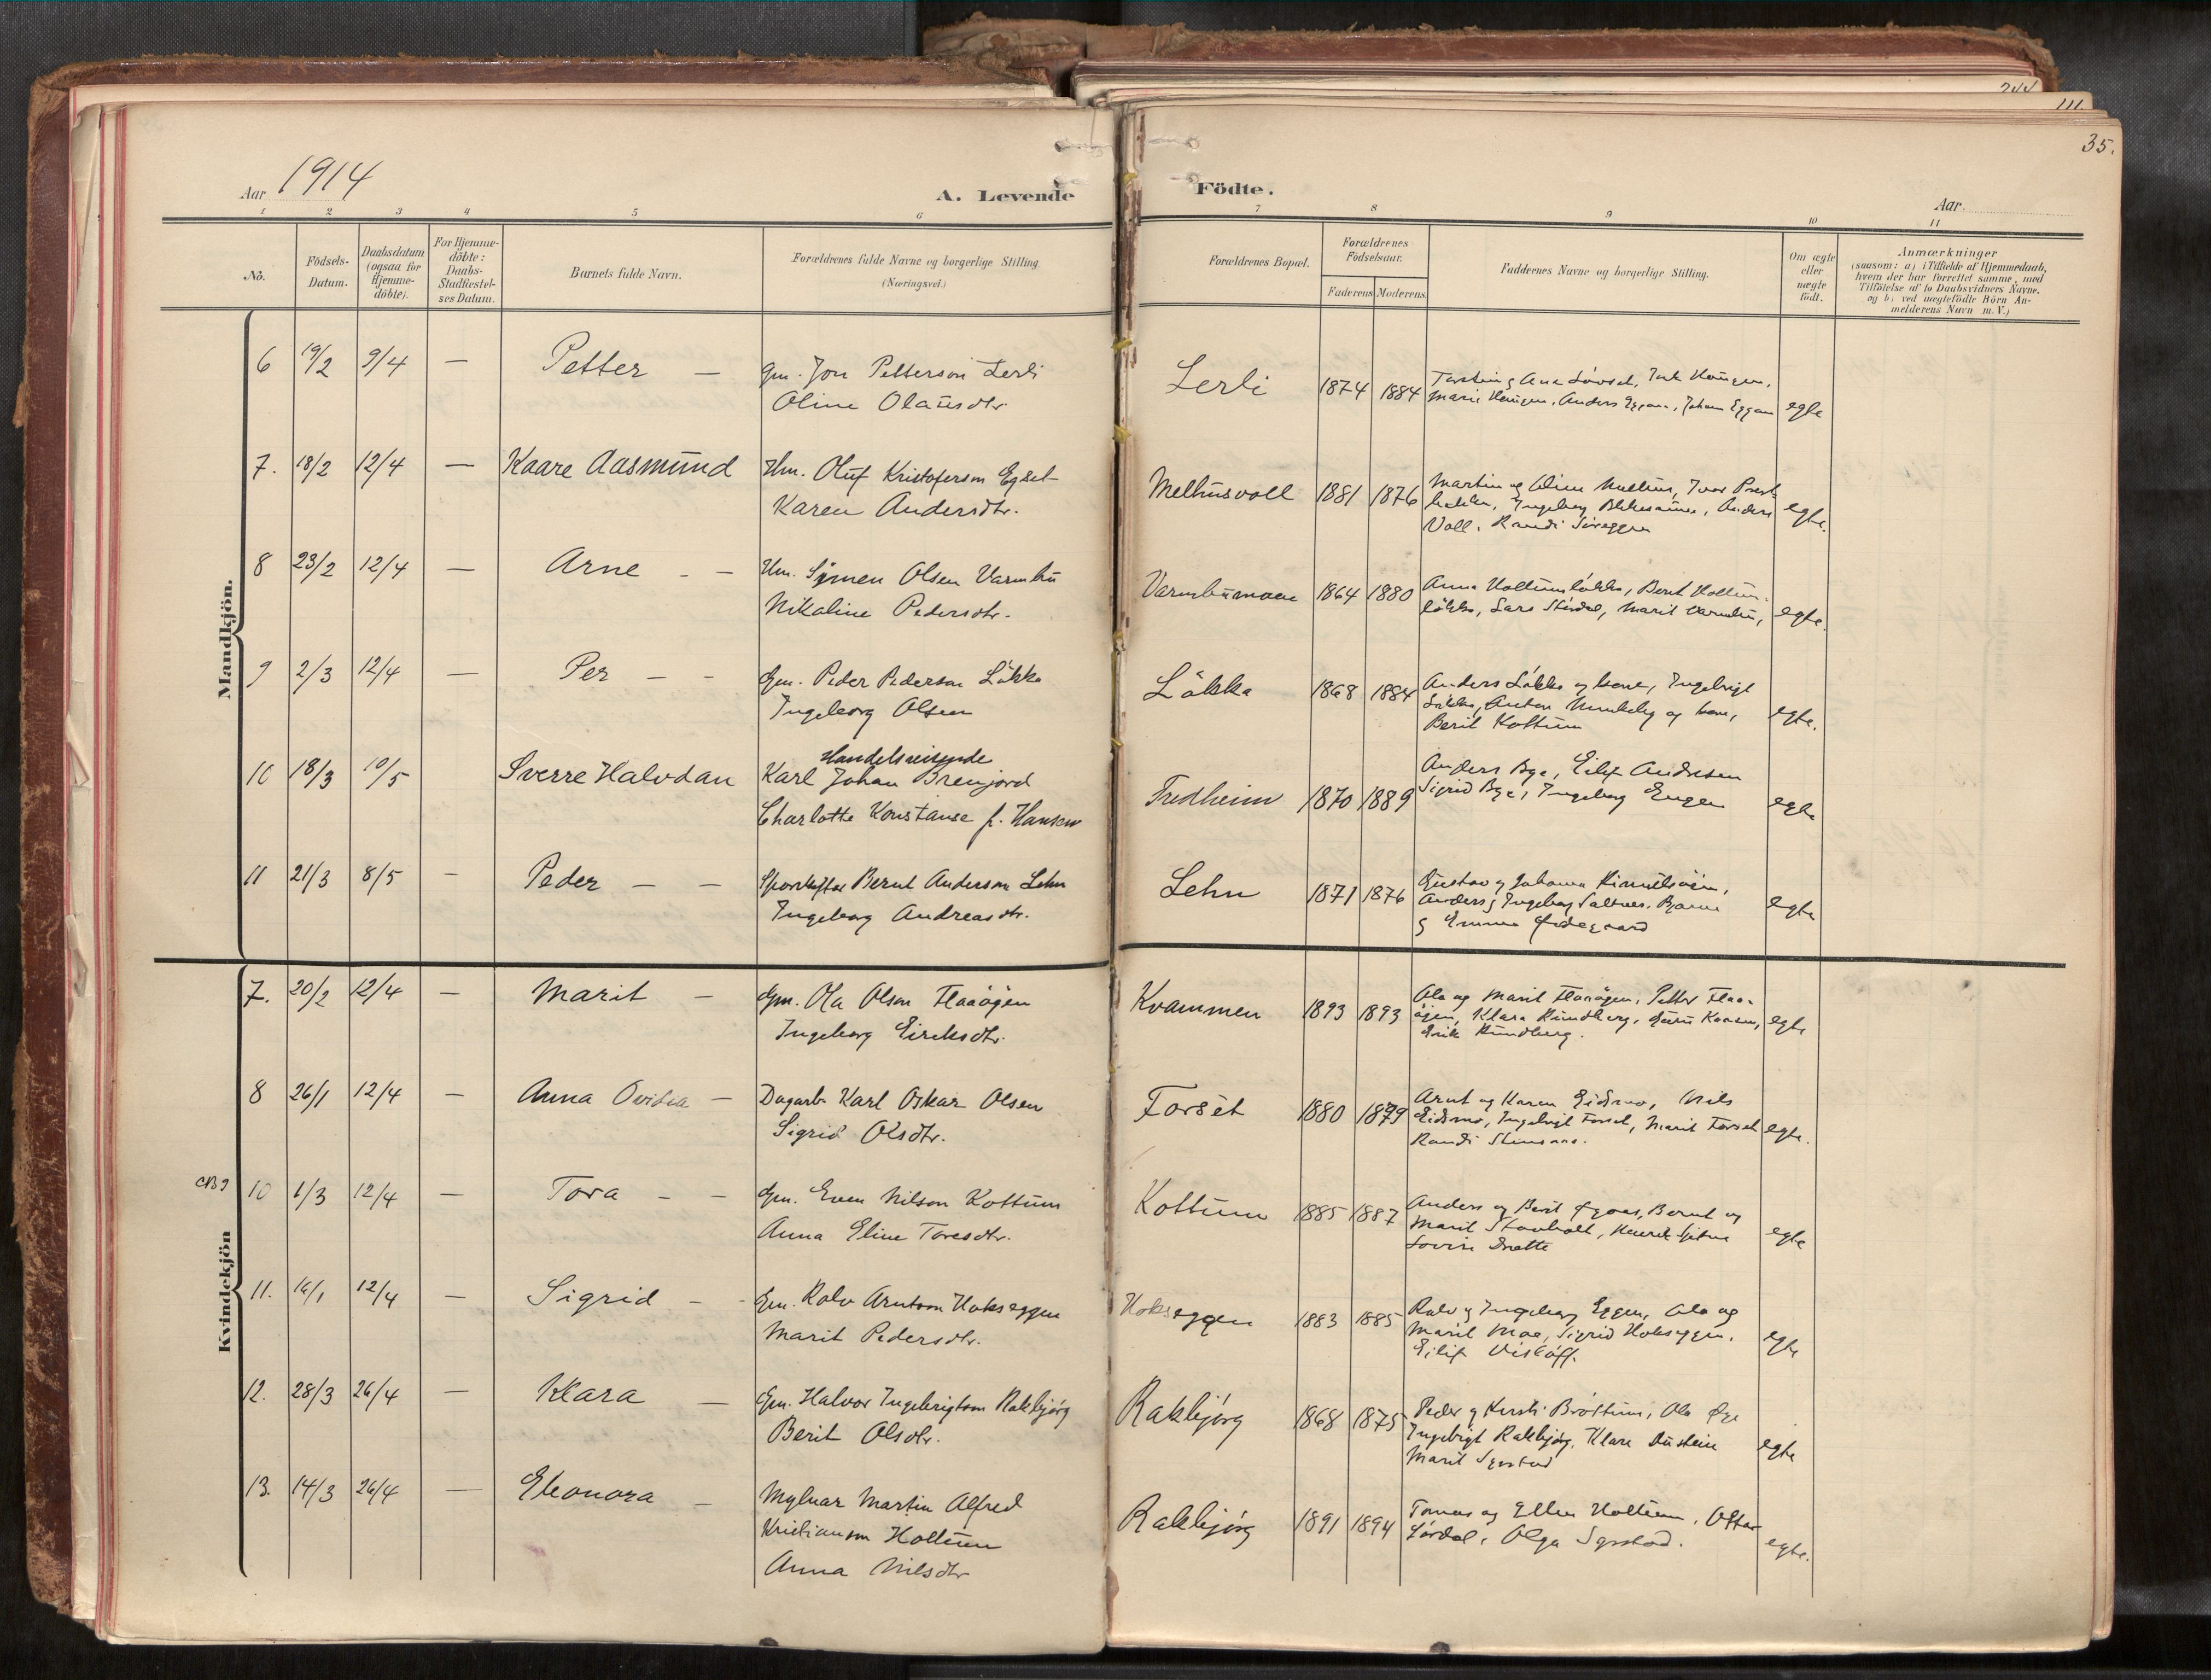 244
111.
35.
Aar 1914
A. Levende Födte.
Aar
1 2 3 4 5 6 7 8 9 10 11
Nö.
Födsels-
Datum.
Daabsdatum
(ogsaa for
Hjemme-
döbte).
For Hjemme-
döbte:
Daabs-
Stadfæstel-
ses Datum.
Barnets fulde Navn.
Forældrenes fulde Navne og borgerlige Stilling.
(Næringsvei.)
Forældrenes Bopæl.
Forældrenes
Födselsaar.
Faderens Moderens
Faddernes Navne og borgerlige Stilling.
Om ægte
eller
uægte
född.
Anmærkninger
(saasom: a) i Tilfælde af Hjemmedaab,
hvem der har forrettet samme, med
Tilföielse af to Daabsvidners Navne.
og b) ved uægtefödte Börn An-
melderens Navn m. V.)
Mandkjön.
6 19/2 9/4 — Petter — Gm. Jon Petterson Lerli
Oline Olausdtr.
Lerli 1874 1884
Marie Haugen, Anders Eggan, Johan Eggan egte
7. 18/2 12/4 — Kaare Aasmund Hm. Oluf Kristoferson Egset
Karen Andersdtr.
Melhusvoll 1881 1876 Martin og Oline Melhus, Ivar Prest-
Anders egte.
Voll. Randi
8 23/2 12/4 — Arne - — Hm. Simen Olsen Varmbu
Nikaline Pedersdtr.
Varmbumoen 1864 1880 Anna Holtumløkke, Berit Holtum-
løkke, Lars Størdal, Marit Varmbu, egte.
9 2/3 12/4 — Per — - Gm. Peder Pederson Løkke
Ingeborg Olsen
Løkke 1868 1884 Anders Løkke og kone, Ingebrigt
Løkke, Anton Munkeby og kone, egte.
Berit Kottum
10 18/3 10/5 Sverre Halvdan Handelsreisende
Karl Johan Brenjord
Charlotte Konstanse f. Hansen
Fredheim 1870 1889 Anders Bye, Eilif Andresen
Sigrid Bye, Ingeborg Engen egte
11 21/3 8/5 — Peder — — Berut Anderson Lehn
Ingeborg Andreasdtr.
Lehn 1871 1876 Gustav og Johanna
Anders og Ingeborg Saltnes. Bjarne egte
og Emma Ødegaard
Kvindekjön
7. 20/2 12/4 — Marit — Gm. Ola Olson Flaaøgen
Ingeborg Eireksdtr.
Kvammen 1893 1893 Ola og Marit Flaaøgen, Petter Flaa-
øgen, Klara Rundberg, egte
Erik Rundberg.
8 26/1 12/4 — Anna Ovidia — Dagarb. Karl Oskar Olsen
Sigrid Olsdtr.
Forset 1880 1879 Arnt og Karen Eidsmo, Nils
Eidsmo, Ingebrigt Forset, Marit Forset egte.
Randi Stensaas.
10 1/3 12/4 — Tora - — Gm. Even Nilson Kottum
Anna Eline Toresdtr.
Kottum 1885 1887 Anders og Berit Øyaas, Bernt og
Marit
egte
11. 16/1 12/4 — Sigrid — - Gm. Rolv Arntson Hokseggen
Marit Pedersdtr.
Hokseggen 1883 1885 Rolv og Ingeborg Eggen, Ola og
Marit Moe, Sigrid Hokseggen, egte
Eilif Visløff.
12. 28/3 26/4 — Klara — Gm. Halvor Ingebrigtson Rakbjørg
Berit Olsdtr.
Rakbjørg 1868 1875 Peder og Kirsti Brøttum, Ola Øye
Ingebrigt Rakbjørg, Klara egte
Marit
13. 14/3 26/4 — Eleonora — Mylnar Martin Alfred
Kristianson Holtum
Anna Nilsdtr
Rakbjørg 1891 1894 Tomas og Ellen Holtum,
Lørdal, Olga egte.